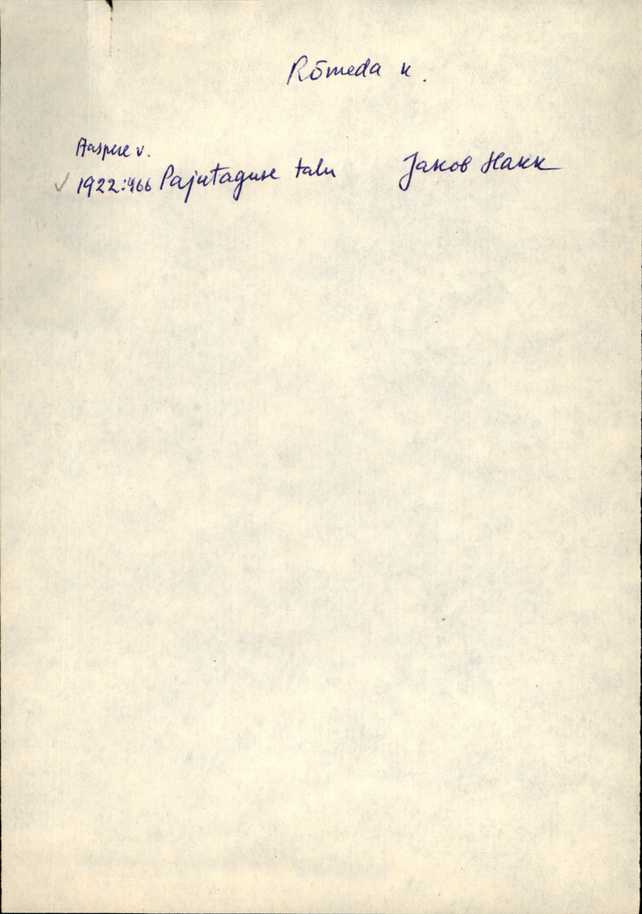 Rõmeda k.
Aaspere v.
✓ 1922:466 Pajutaguse talu Jakob Hakk